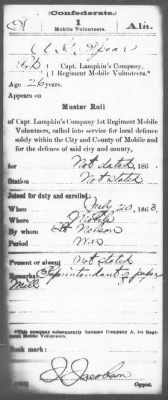 Confederate.
1
Mobile Volunteers.
Ala.
Capt. Lampkin's Company,
1 Regiment Mobile Volunteers.*
Age 26 years.
Appears on
Muster Roll
of Capt. Lampkin's Company 1st Regiment Mobile
Volunteers, called into service for local defence
solely within the City and County of Mobile and
for the defence of said city and county,
for Not dated, 186
Station Not stated
Joined for duty and enrolled:
When July 20, 1863.
Where Mobile
By Nelson
Period War
Present or absent Not stated
Remarks: Superintendent of paper
Mill
*This company subsequently became Company A, 1st Regiment
Mobile Volunteers.
Book mark:
J. Jacobson
Copyist.